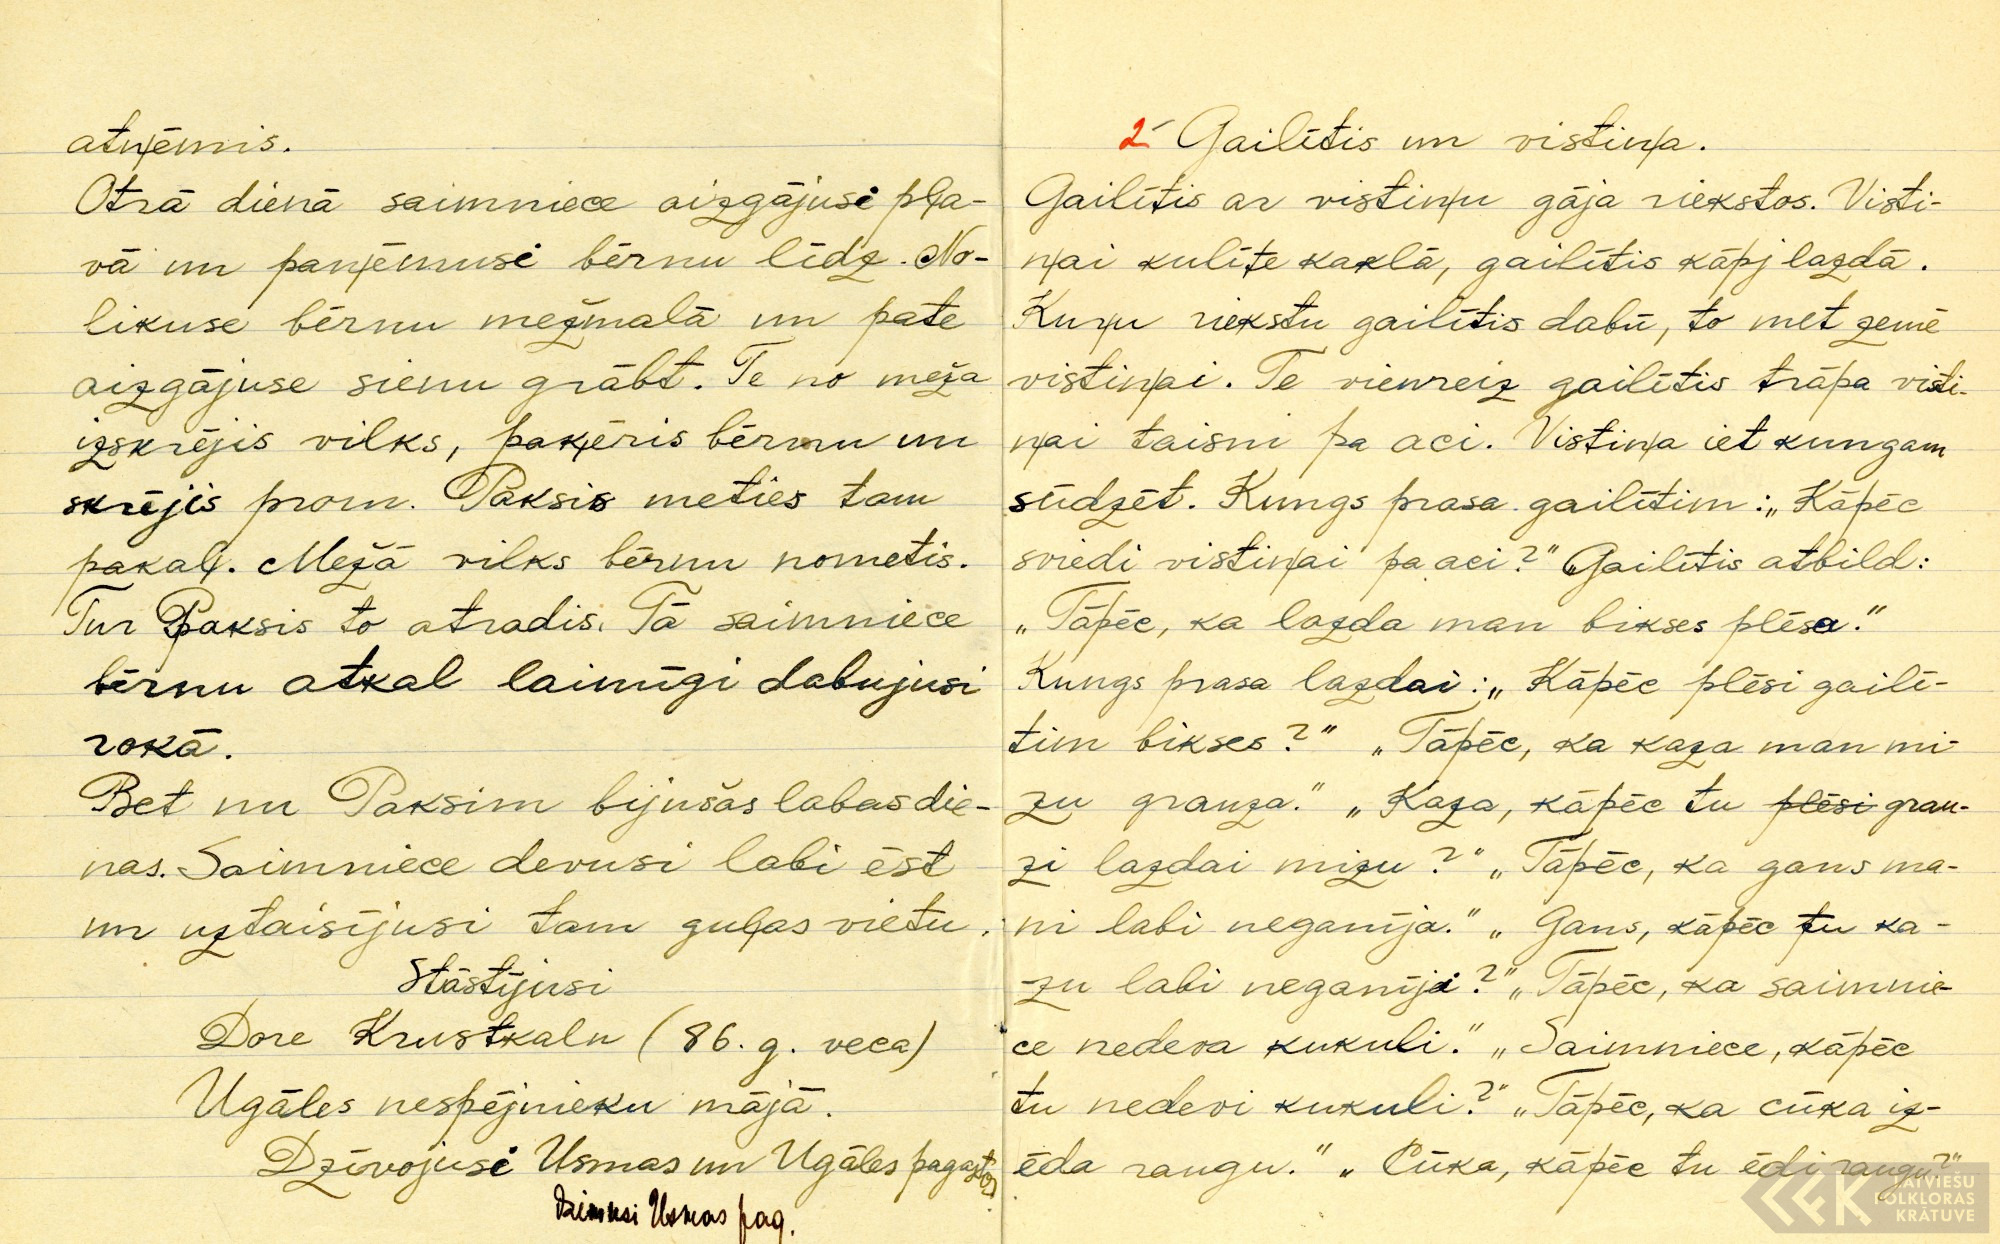 atņēmis.
Otrā dienā saimniece aizgājusi pļa-
vā un paņēmusi bērnu līdz. No-
likuse bērnu mežmalā un pate
aizgājuse sienu grābt. Te no meža
izskrējis vilks, paķēris bērnu un
skrējis prom. Paksis meties tam
pakaļ. Mežā vilks bērnu nometis.
Tur Paksis to atradis. Tā saimniece
bērnu atkal laimīgi dabujusi
rokā.
Bet nu Paksim bijušas labas die-
nas. Saimniece devusi labi ēst
un uztaisījusi tam guļas vietu.
Stāstījusi
Dore Krustkaln (86. g. veca)
Ugāles nespējnieku mājā.
Dzīvojusi Usmas un Ugāles pagastos
Dzimusi Usmas pag.
2 Gailītis un vistiņa.
Gailītis ar vistiņu gāja riekstos. Visti-
ņai kulīte kaklā, gailītis kāpj lazdā.
Kuŗu riekstu gailītis dabū, to met zemē
vistiņai. Te vienreiz gailītis trāpa visti-
ņai taisni pa aci. Vistiņa iet kungam
sūdzēt. Kungs prasa gailītim: „Kāpēc
sviedi vistiņai pa aci?" Gailītis atbild:
„Tāpēc, ka lazda man bikses plēsa."
Kungs prasa lazdai: „Kāpēc plēsi gailī-
tim bikses?" „Tāpēc, ka kaza man mi-
zu grauza." „Kaza, kāpēc tu plēsi grau-
zi lazdai mizu?" „Tāpēc, ka gans ma-
ni labi neganīja." „Gans, kāpēc tu ka-
zu labi neganīji?" „Tāpēc, ka saimnie-
ce nedeva kukuli." „Saimniece, kāpēc
tu nedevi kukuli?" „Tāpēc, ka cūka iz-
ēda raugu." „Cūka, kāpēc tu ēdi raugu?"
LATVIEŠU
FOLKLORAS
KRĀTUVE